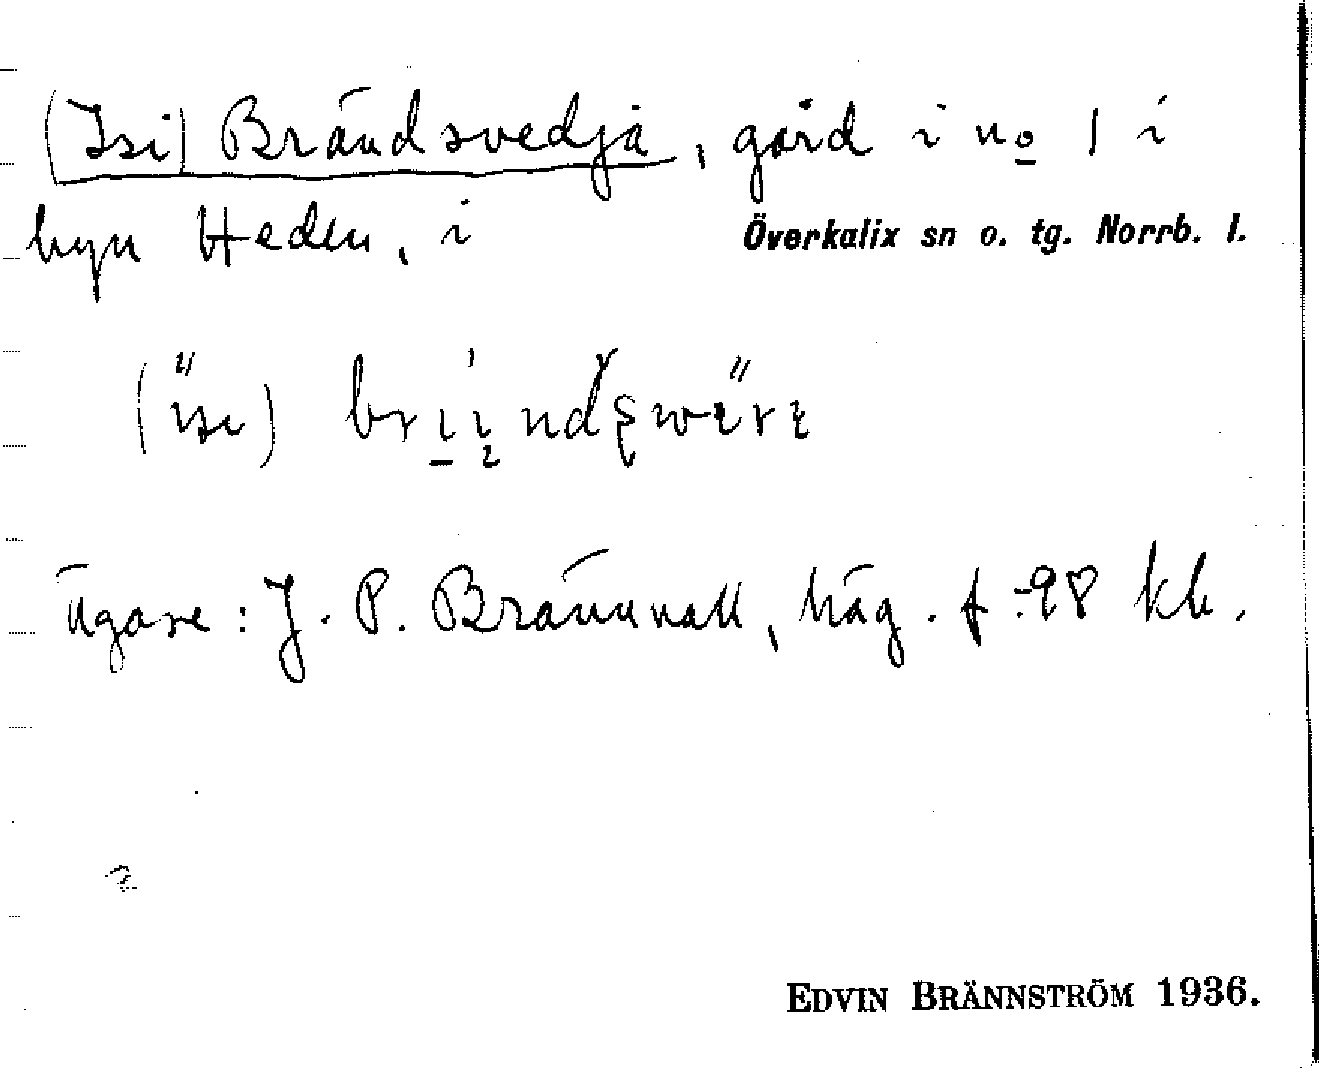 (Isi) Brändsvedja, gård i no 1 i
byn Heden, i Överkalix sn o. tg. Norrb. l.
ägare: J. P. Brännvall, häg. f -98 kb.
EDVIN BRÄNNSTRÖM 1936.